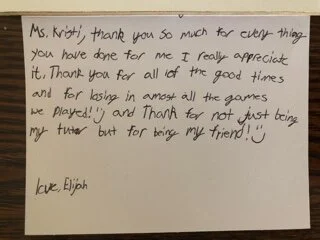 Ms. Kristi, thank you so much for every thing
you have done for me I really appreciate
it, Thank you for all of the good times
and for losing in amost all the games
we played! :) and Thank for not just being
my tutor but for being my friend! :)
love, Elijah